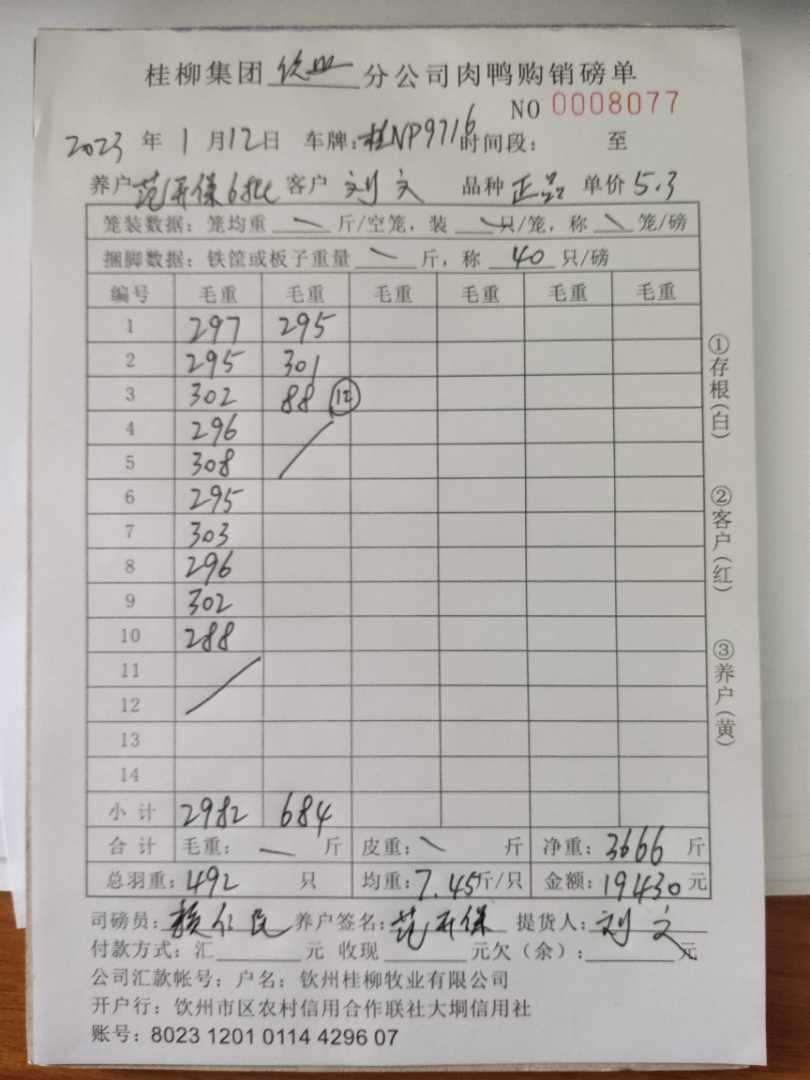 桂柳集团钦州分公司肉鸭购销磅单
NO 0008077
2023年1月12日 车牌:桂NP9716 时间段: 至
养户范开保68批 客户 刘文 品种 正品 单价 5.3
笼装数据: 笼均重 — 斤/空笼, 装 — 只/笼, 称 — 笼/磅
捆脚数据: 铁筐或板子重量 — 斤, 称 40 只/磅
编号 毛重 毛重 毛重 毛重 毛重 毛重
1 297 295
2 295 301
3 302 88 ⑫
4 296
5 308
6 295
7 303
8 296
9 302
10 288
11
12
13
14
小计 2982 684
合计 毛重: — 斤 皮重: — 斤 净重: 3666 斤
总羽重: 492 只 均重: 7.45斤/只 金额: 19430 元
司磅员: 仁民 养户签名: 范开保 提货人: 刘文
付款方式: 汇 元 收现 元欠(余): 元
公司汇款帐号: 户名: 钦州桂柳牧业有限公司
开户行: 饮州市区农村信用合作联社大垌信用社
账号: 8023 1201 0114 4296 07
①存根(白)
②客户(红)
③养户(黄)